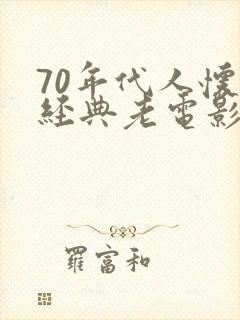 70年代人懷
經典老電影
羅富和